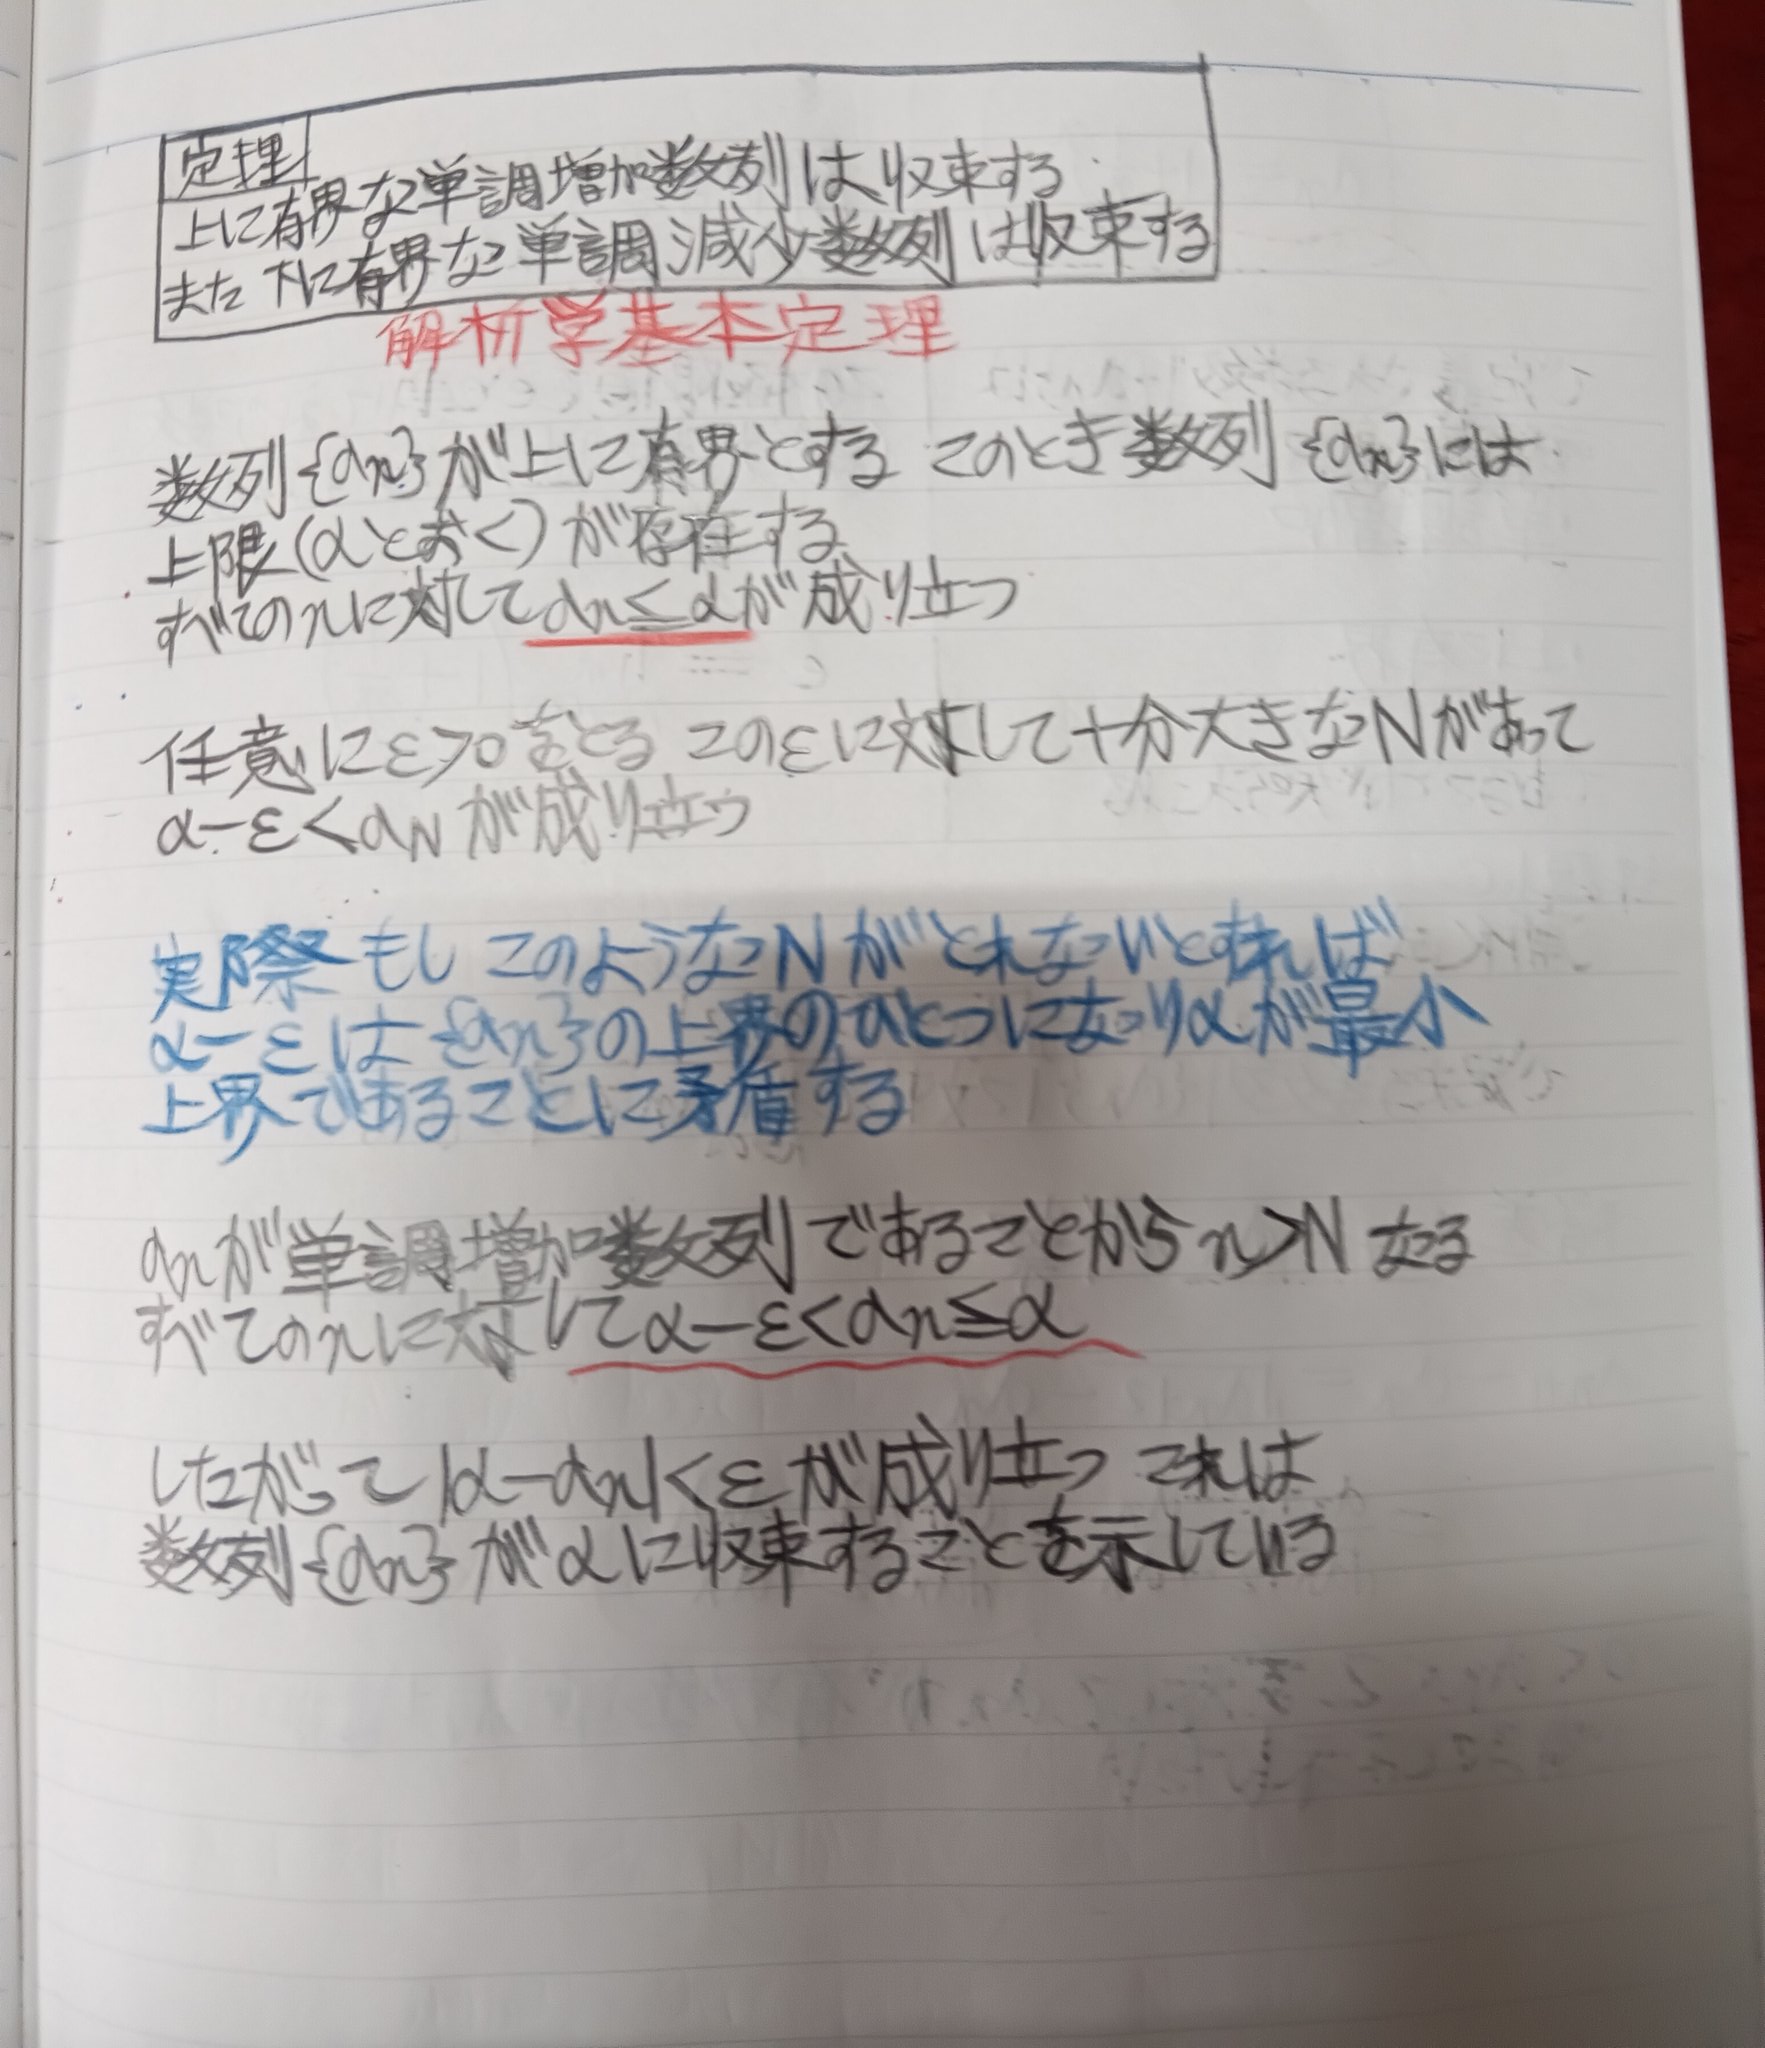 定理
上に有界な単調増加数列は収束する
また下に有界な単調減少数列は収束する
解析学基本定理
数列{an}が上に有界とする このとき数列{an}には
上限(αとおく)が存在する
すべてのnに対してan≦αが成り立つ
任意にε>0をとる このεに対して十分大きなNがあって
α-ε<aNが成り立つ
実際もしこのようなNがとれないとすれば
α-εは{an}の上界のひとつになりαが最小
上界であることに矛盾する
anが単調増加数列であることからn>Nなる
すべてのnに対してα-ε<an≦α
したがって|α-an|<εが成り立つ これは
数列{an}がαに収束することを示している